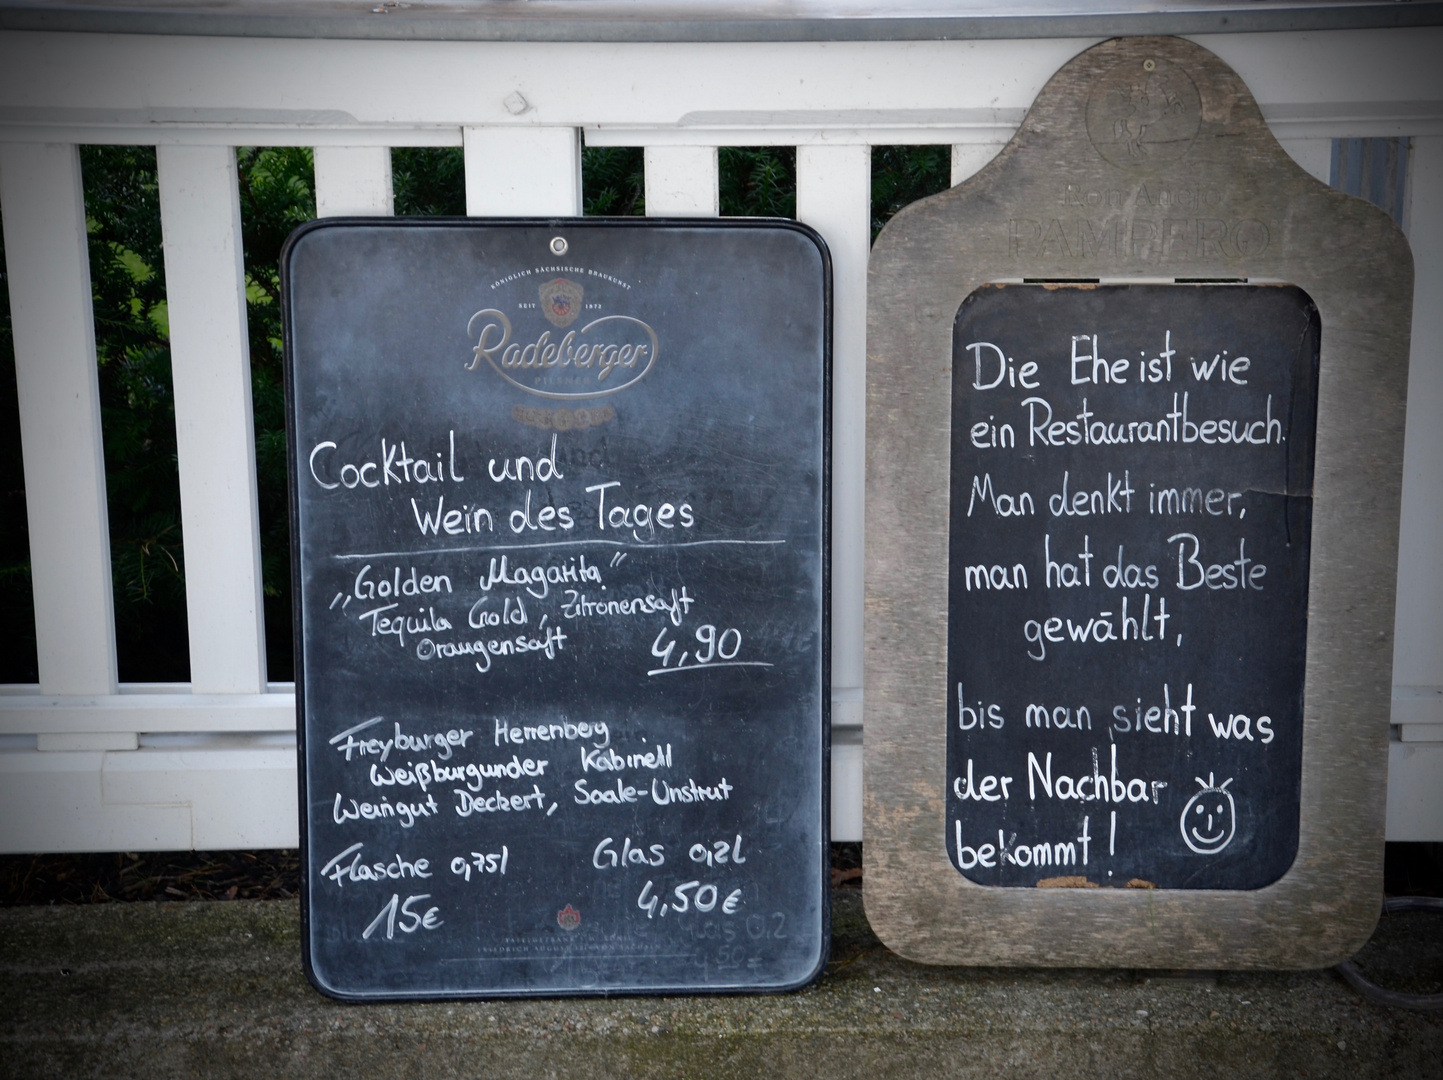 KÖNIGLICH SÄCHSISCHE BRAUKUNST
SEIT 1872
Radeberger
PILSNER
Cocktail und
Wein des Tages
„Golden Magarita"
Tequila Gold, Zitronensaft
Orangensaft
4,90
Freyburger Herrenberg
Weißburgunder Kabinett
Weingut Deckert, Saale-Unstrut
Flasche 0,75l Glas 0,2l
15€ 4,50€
PAMPERO
Die Ehe ist wie
ein Restaurantbesuch.
Man denkt immer,
man hat das Beste
gewählt,
bis man sieht was
der Nachbar
bekommt!